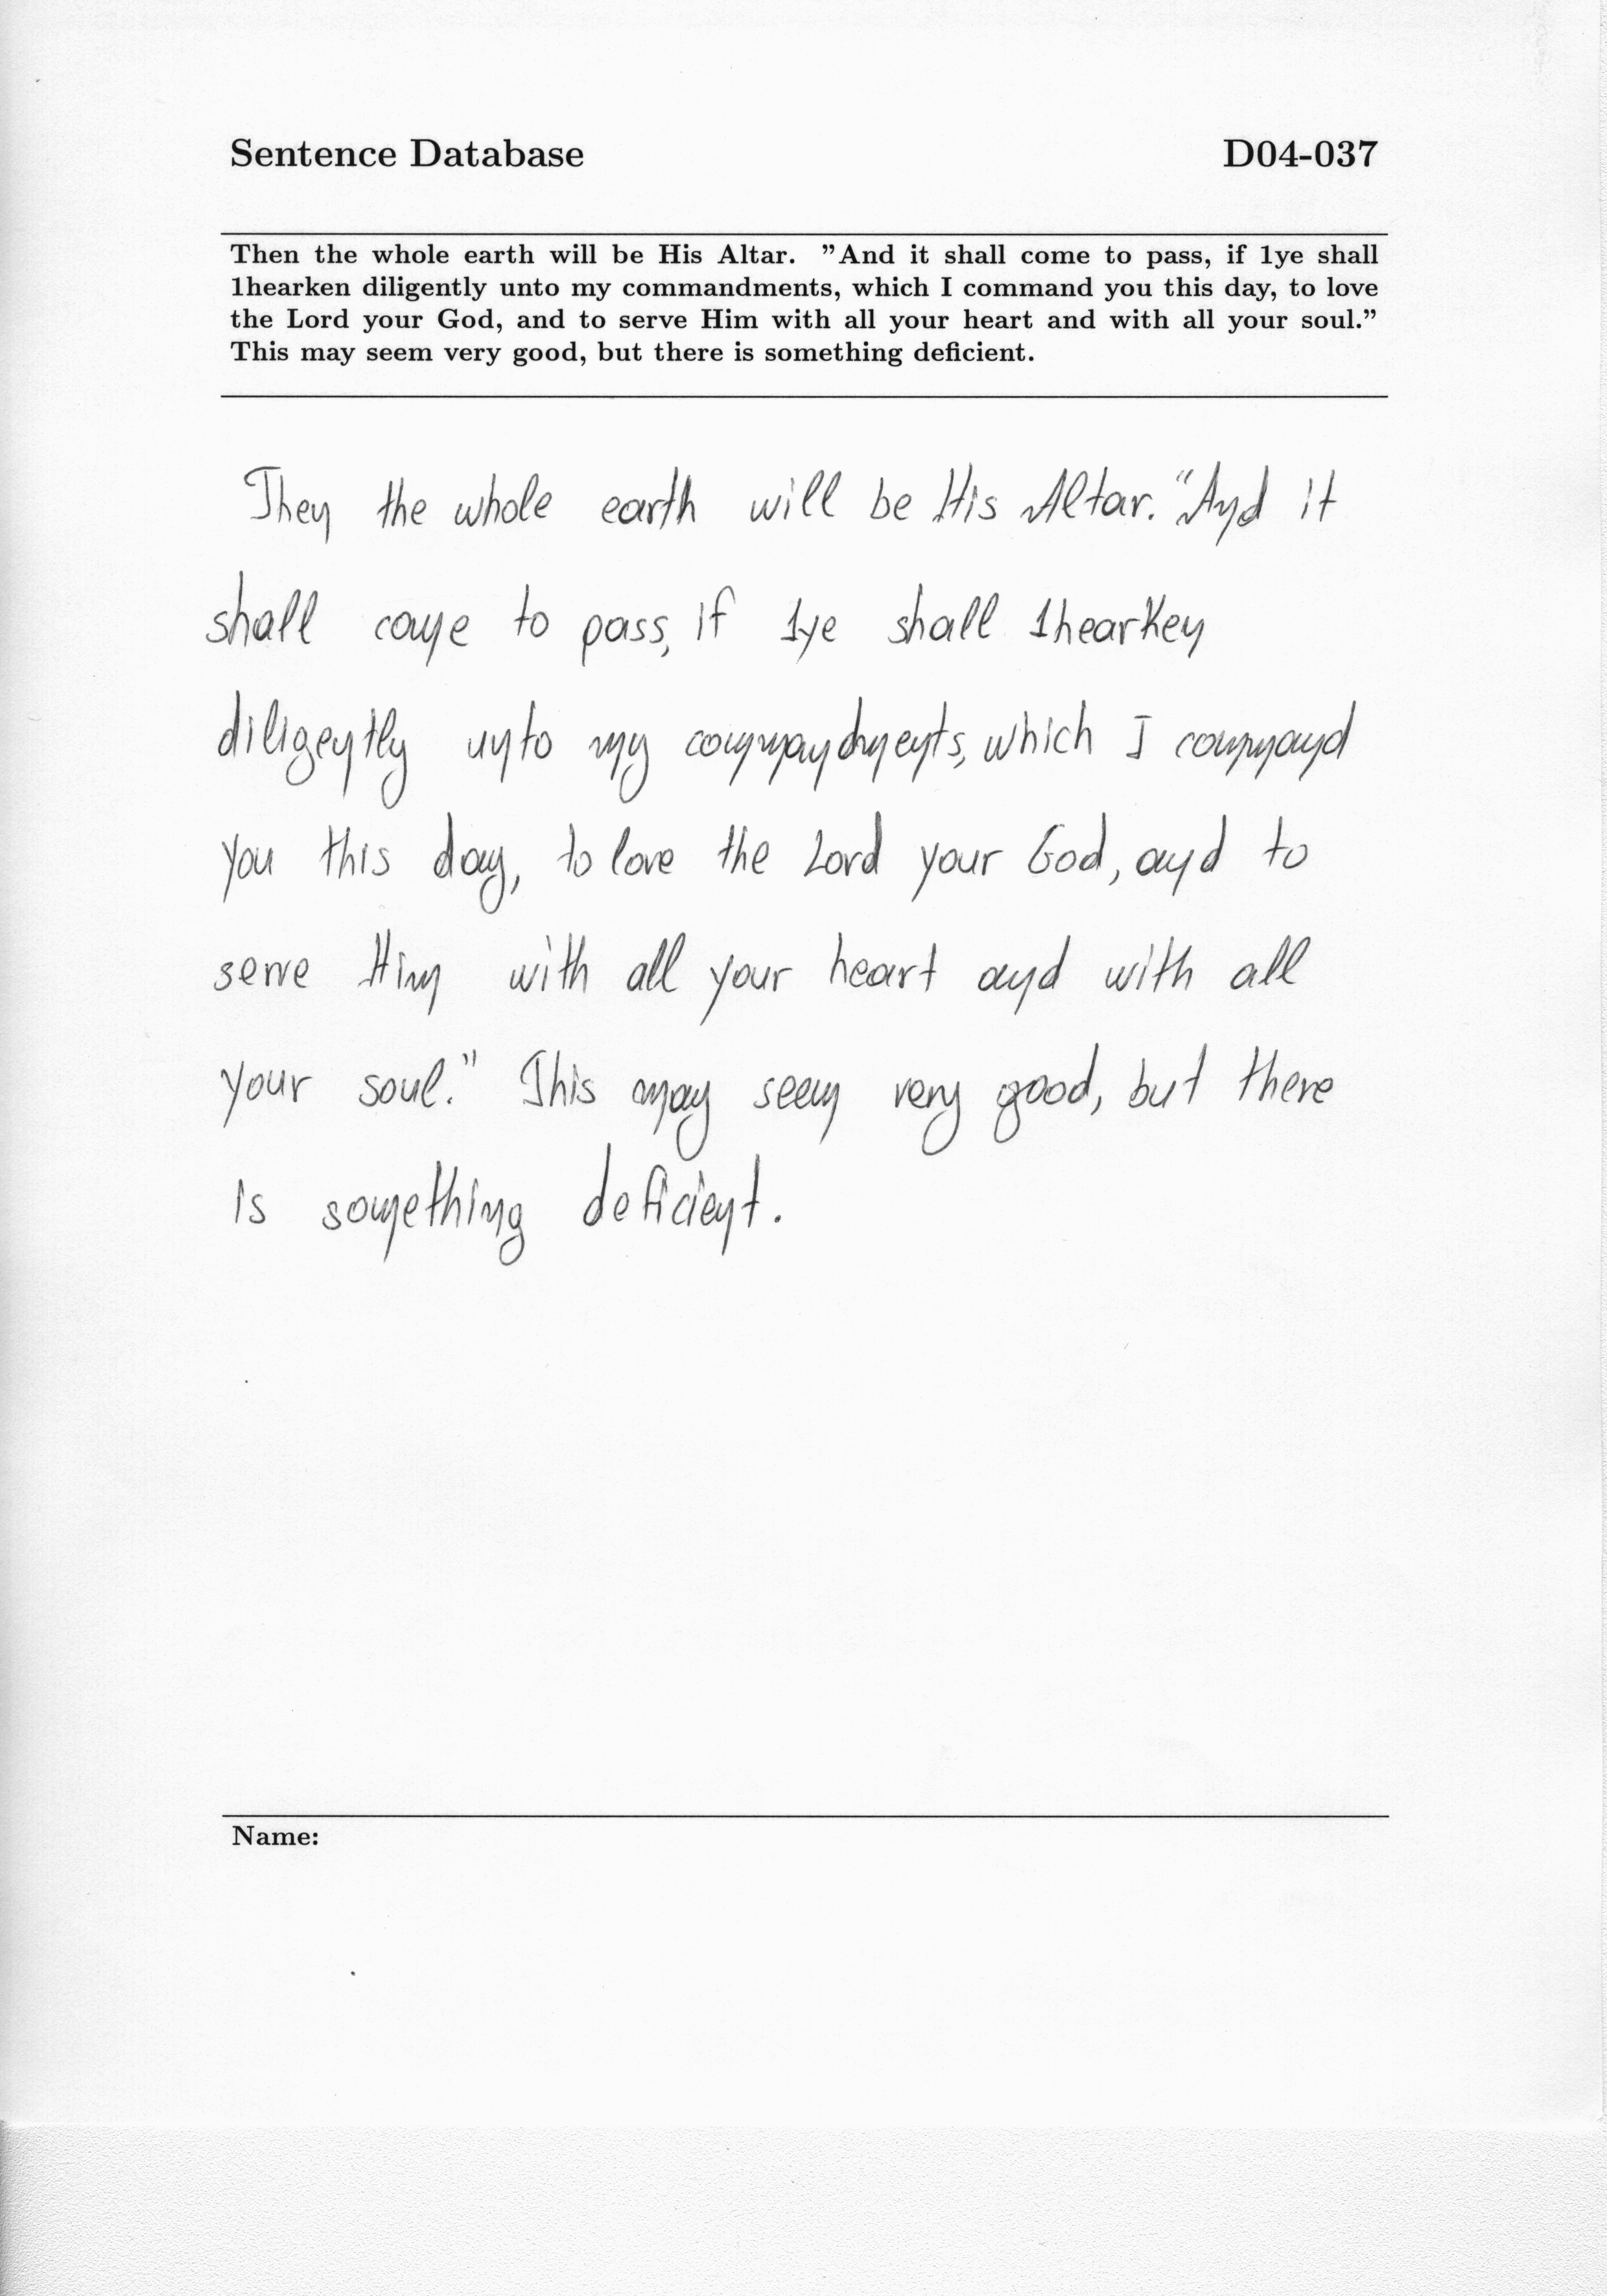 Sentence Database D04-037
Then the whole earth will be His Altar. ”And it shall come to pass, if 1ye shall
1hearken diligently unto my commandments, which I command you this day, to love
the Lord your God, and to serve Him with all your heart and with all your soul.”
This may seem very good, but there is something deficient.
Then the whole earth will be His Altar. “And it
shall come to pass, if 1ye shall 1hearken
diligently unto my commandments, which I command
you this day, to love the Lord your God, and to
serve Him with all your heart and with all
your soul.” This may seem very good, but there
is something deficient.
Name: